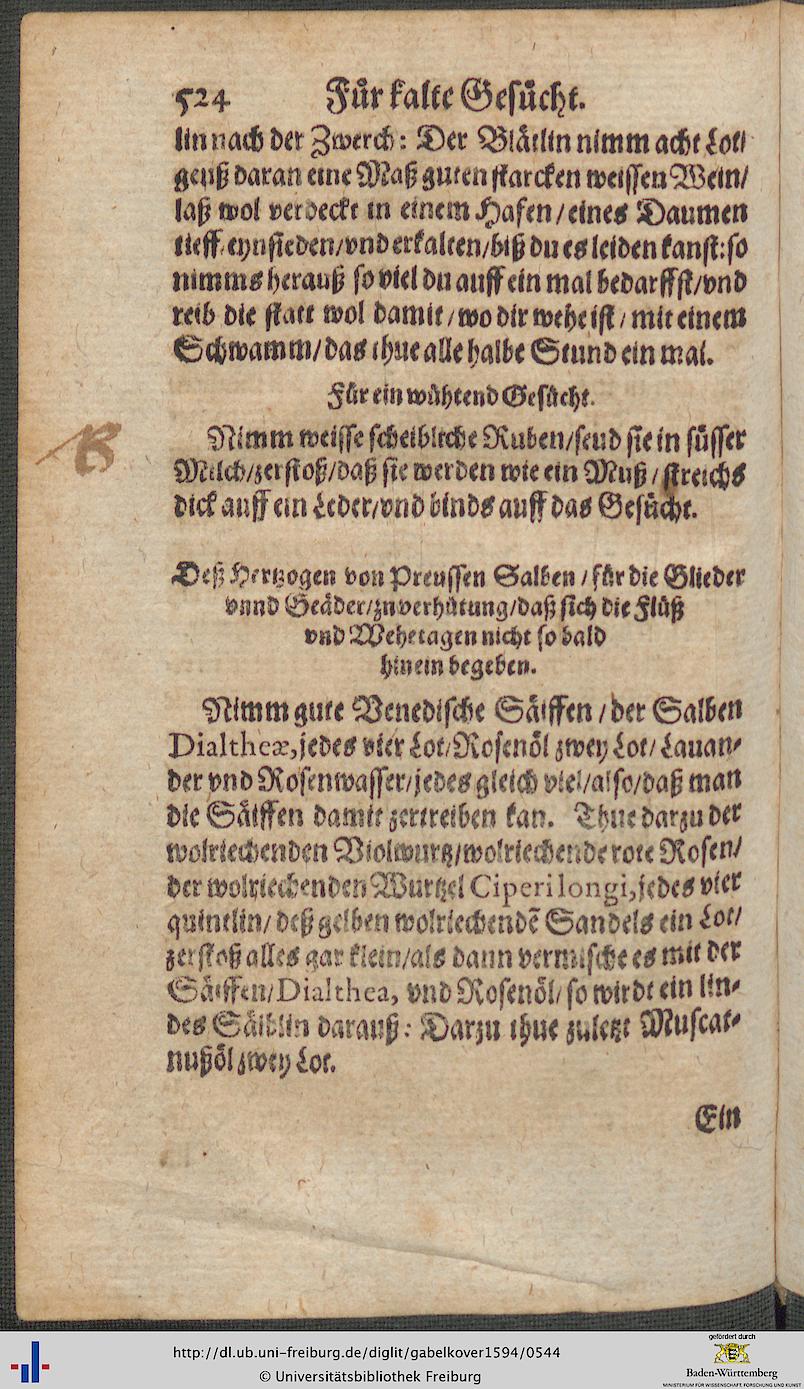 524 Für kalte Gesücht.
lin nach der Zwerch: Der Blätlin nimm acht Lot/
geuß daran eine Maß guten starcken weissen Wein/
laß wol verdeckt in einem Hafen / eines Daumen
tieff eynsieden/vnd erkalten/biß du es leiden kanst: so
nimms herauß so viel du auff ein mal bedarffst/vnd
reib die statt wol damit / wo dir wehe ist / mit einem
Schwamm/das thue alle halbe Stund ein mal.
Für ein wühtend Gesücht.
B
Nimm weisse scheibliche Ruben/seud sie in süsser
Milch/zerstoß/daß sie werden wie ein Muß / streichs
dick auff ein Leder/vnd binds auff das Gesücht.
Deß Hertzogen von Preussen Salben / für die Glieder
vnnd Geäder/zu verhütung/daß sich die Flüß
vnd Wehetagen nicht so bald
hinein begeben.
Nimm gute Venedische Säiffen / der Salben
Dialtheæ, jedes vier Lot/Rosenöl zwey Lot/ Lauan-
der vnd Rosenwasser/jedes gleich viel/also/daß man
die Säiffen damit zertreiben kan. Thue darzu der
wolriechenden Violwurtz/wolriechende rote Rosen/
der wolriechenden Wurtzel Ciperi longi, jedes vier
quintlin/ deß gelben wolriechendē Sandels ein Lot/
zerstoß alles gar klein/als dann vermische es mit der
Säiffen/Dialthea, vnd Rosenöl/ so wirdt ein lin-
des Sälblin darauß: Darzu thue zuletzt Muscat-
nußöl zwey Lot.
Ein
http://dl.ub.uni-freiburg.de/diglit/gabelkover1594/0544
© Universitätsbibliothek Freiburg
gefördert durch
Baden-Württemberg
MINISTERIUM FÜR WISSENSCHAFT, FORSCHUNG UND KUNST